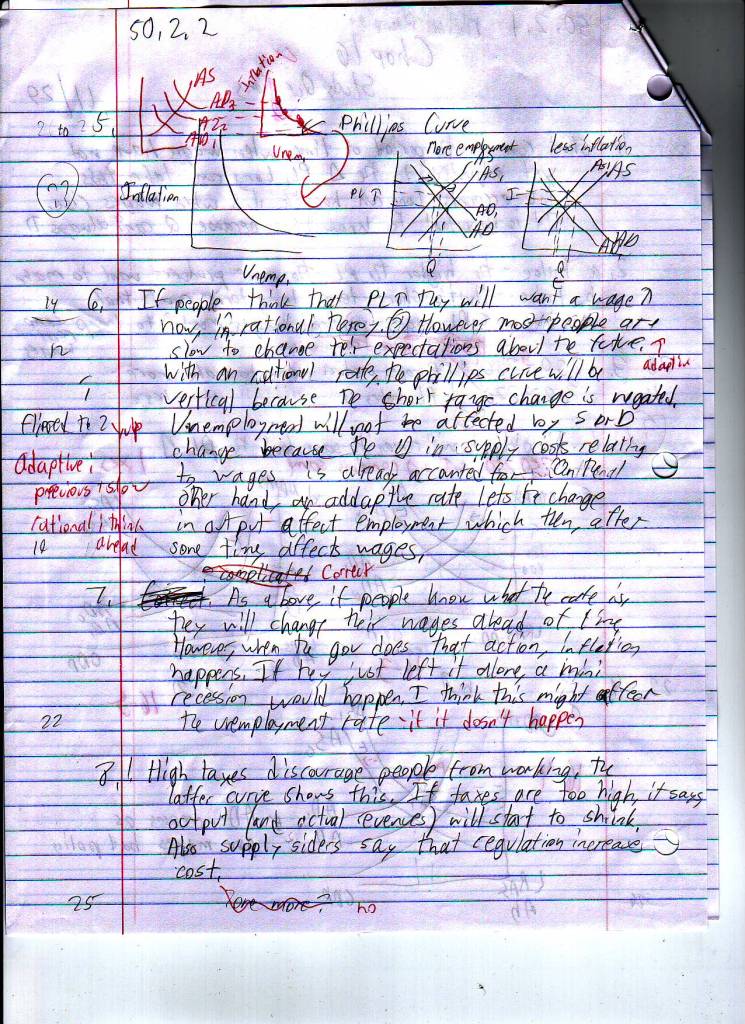 50.2.2
AS
AD3
AD2
AD1
Inflation
Unem.
5.
Phillips Curve
More employment
less inflation
Inflation
Unemp.
PL↑
AS
AS1
AD1
AD
Q
AS1 AS
AD
Q
14
6. If people think that PL↑ they will want a wage ↑
now, in rational theory. However most people are
12
slow to change their expectations about the future.
adaptive
With an rational rate, the phillips curve will be
vertical because the short range change is negated.
flipped to 2 yup
Unemployment will not be affected by S or D
change because the in supply costs relating
Adaptive:
to wages is already accounted for. On the
previous, slow
other hand, an addaptive rate lets the change
rational: think
in output affect employment which then, after
ahead
some time affects wages.
Correct
7. As above, if people know what the rate is,
they will change their wages ahead of time,
However, when the gov does that action, inflation
happens. If they just left it alone, a mini
recession would happen. I think this might affect
22
the unemployment rate - if it dosn't happen
8. ! High taxes discourage people from working, the
laffer curve shows this. If taxes are too high, it says
output (and actual revenues) will start to shrink.
Also supply siders say that regulation increase
cost.
25
one more? no